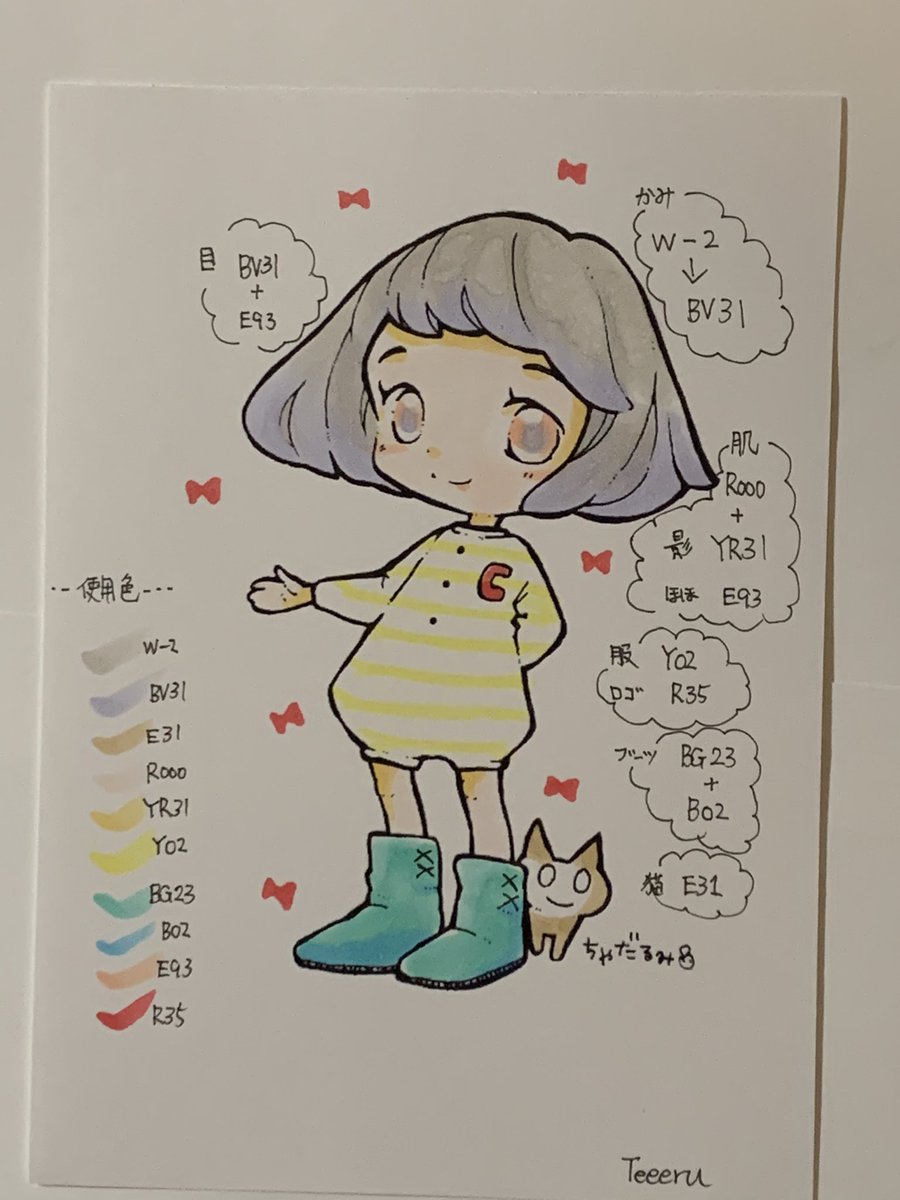 目
BV31
+
E93
かみ
W-2
↓
BV31
肌
R000
+
影 YR31
ほほ E93
服 Y02
ロゴ R35
ブーツ BG23
+
B02
猫 E31
C
ちゃだるみ
--使用色---
W-2
BV31
E31
R000
YR31
Y02
BG23
B02
E93
R35
Teeeru